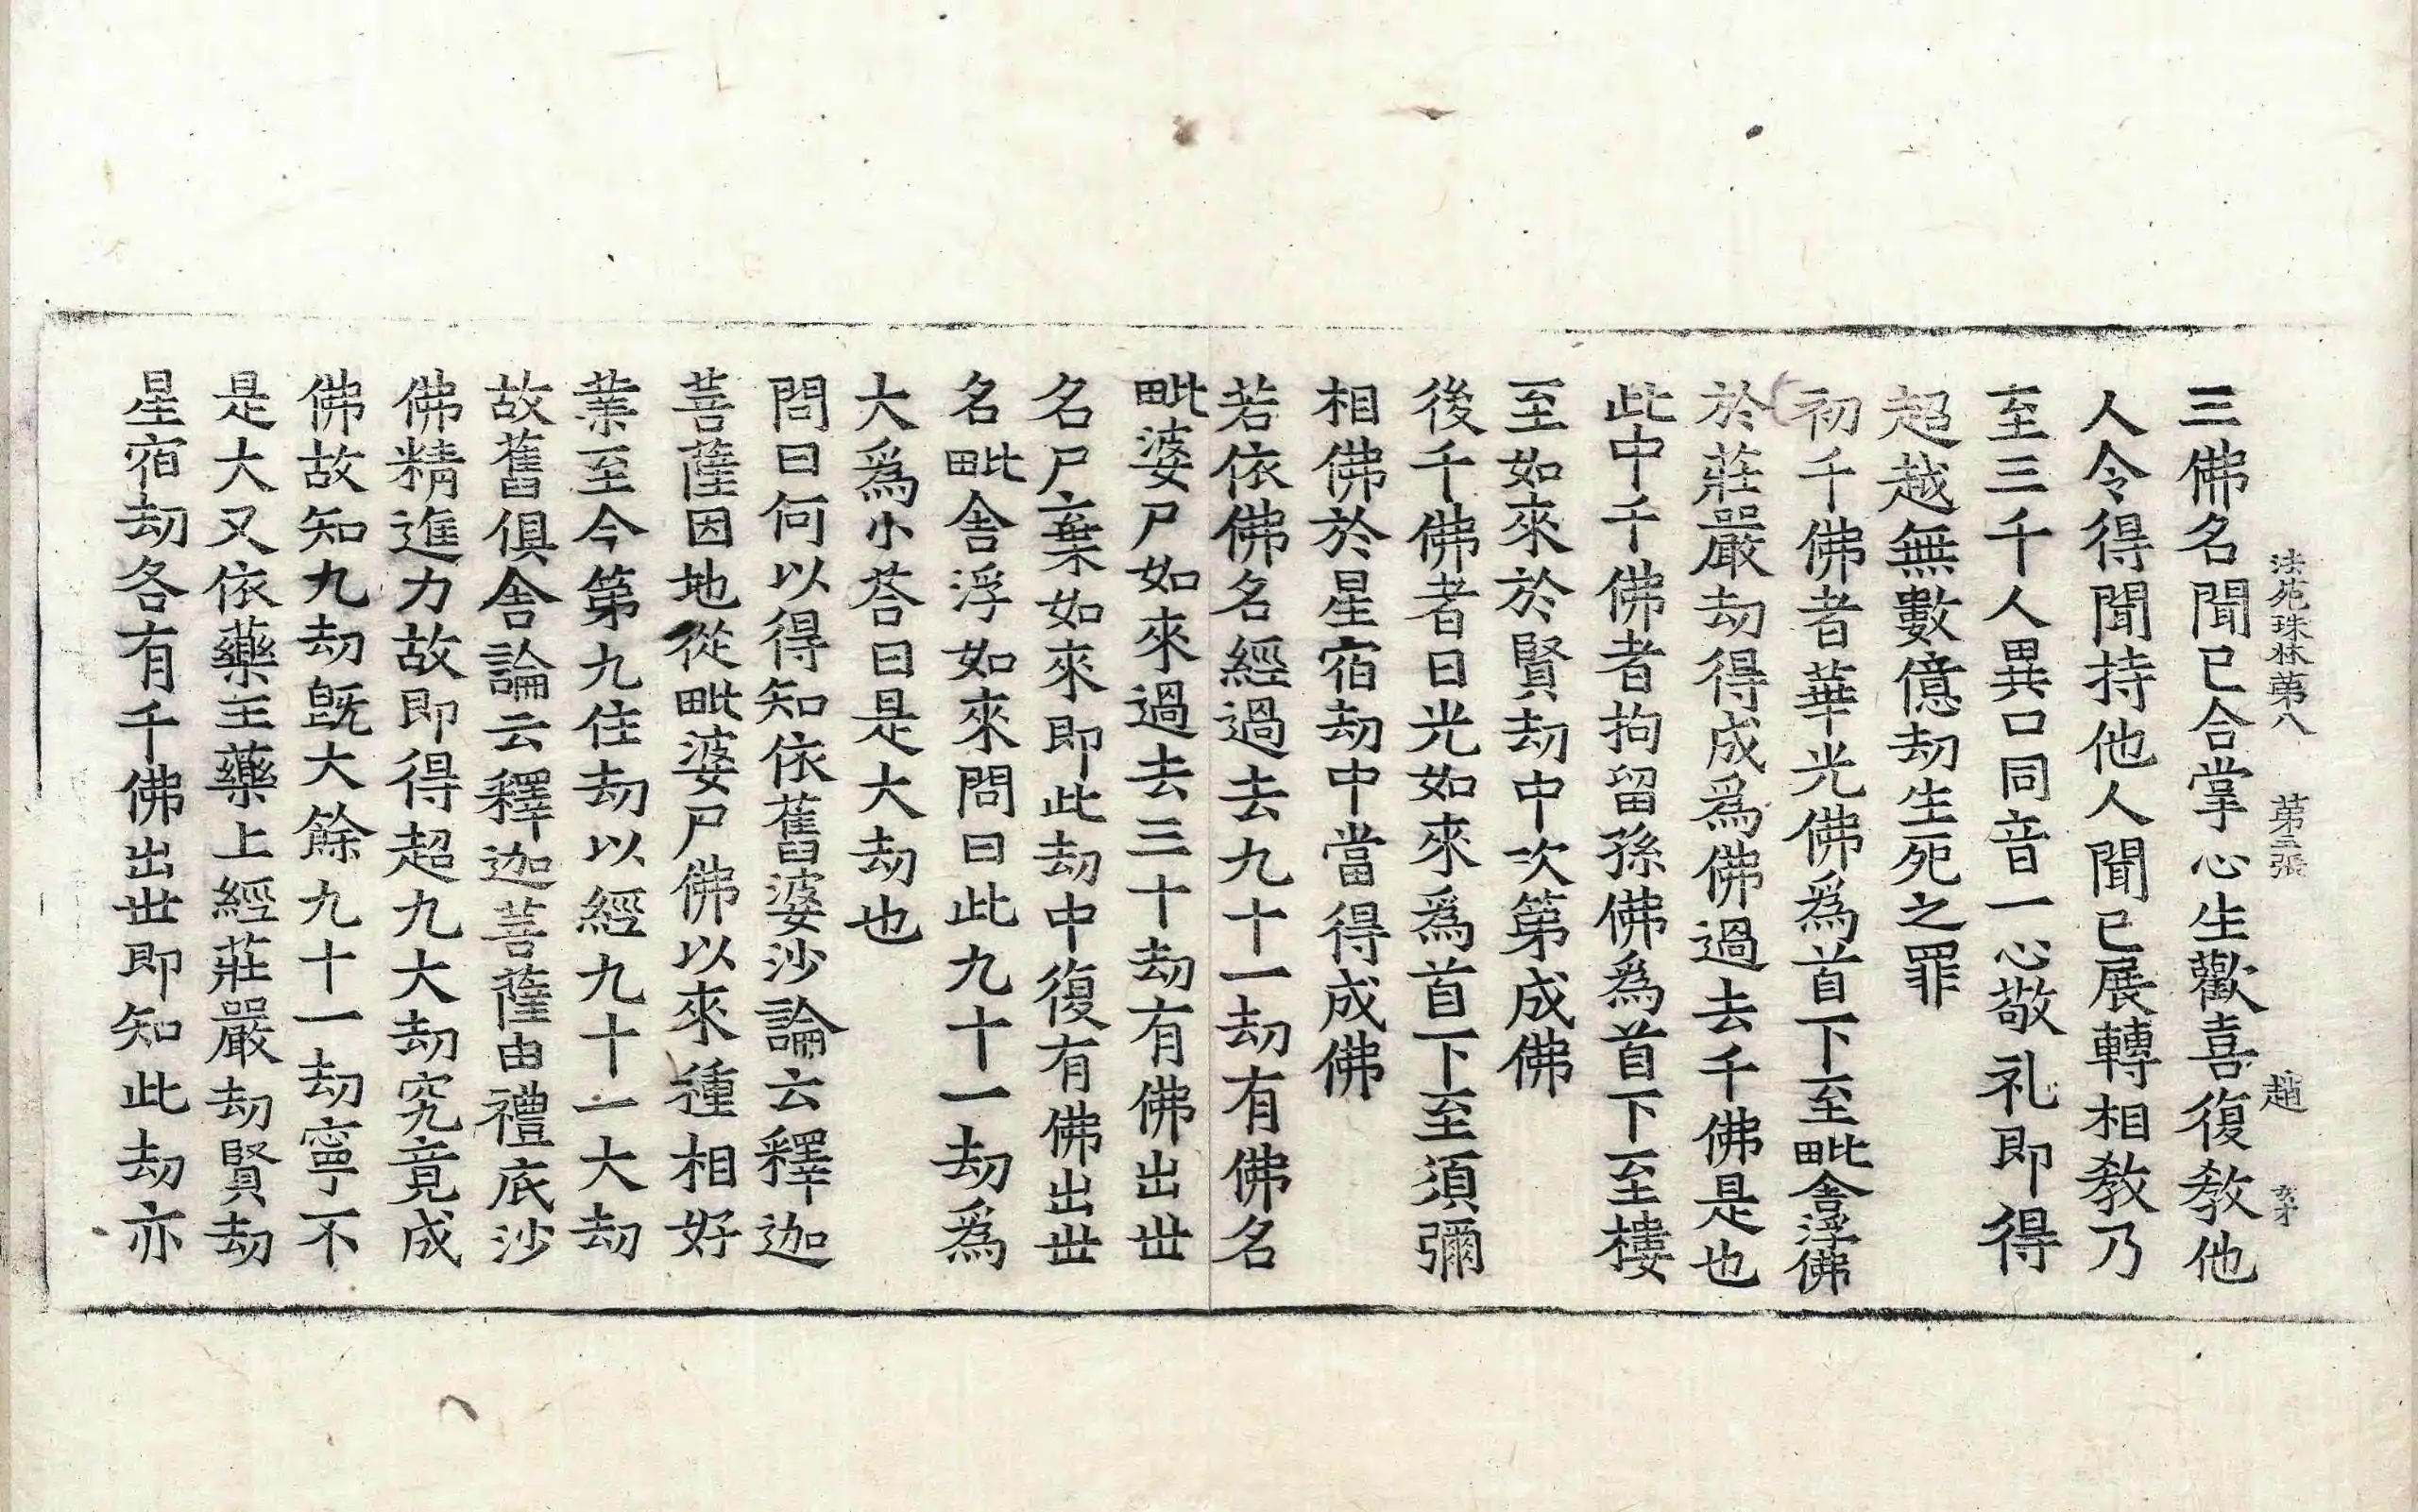 法苑珠林第八 第三張 趙
三佛名聞已合掌心生歡喜復教他
人令得聞持他人聞已展轉相教乃
至三千人異口同音一心敬礼即得
超越無數億劫生死之罪
初千佛者華光佛爲首下至毗舍浮佛
於莊嚴劫得成爲佛過去千佛是也
此中千佛者拘留孫佛爲首下至樓
至如來於賢劫中次第成佛
後千佛者日光如來爲首下至須彌
相佛於星宿劫中當得成佛
若依佛名經過去九十一劫有佛名
毗婆尸如來過去三十劫有佛出世
名尸棄如來即此劫中復有佛出世
名毗舍浮如來問曰此九十一劫爲
大爲小荅曰是大劫也
問曰何以得知依舊婆沙論云釋迦
菩薩因地從毗婆尸佛以來種相好
業至今第九住劫以經九十一大劫
故舊俱舍論云釋迦菩薩由禮底沙
佛精進力故即得超九大劫究竟成
佛故知九劫旣大餘九十一劫寧不
是大又依藥王藥上經莊嚴劫賢劫
星宿劫各有千佛出世即知此劫亦